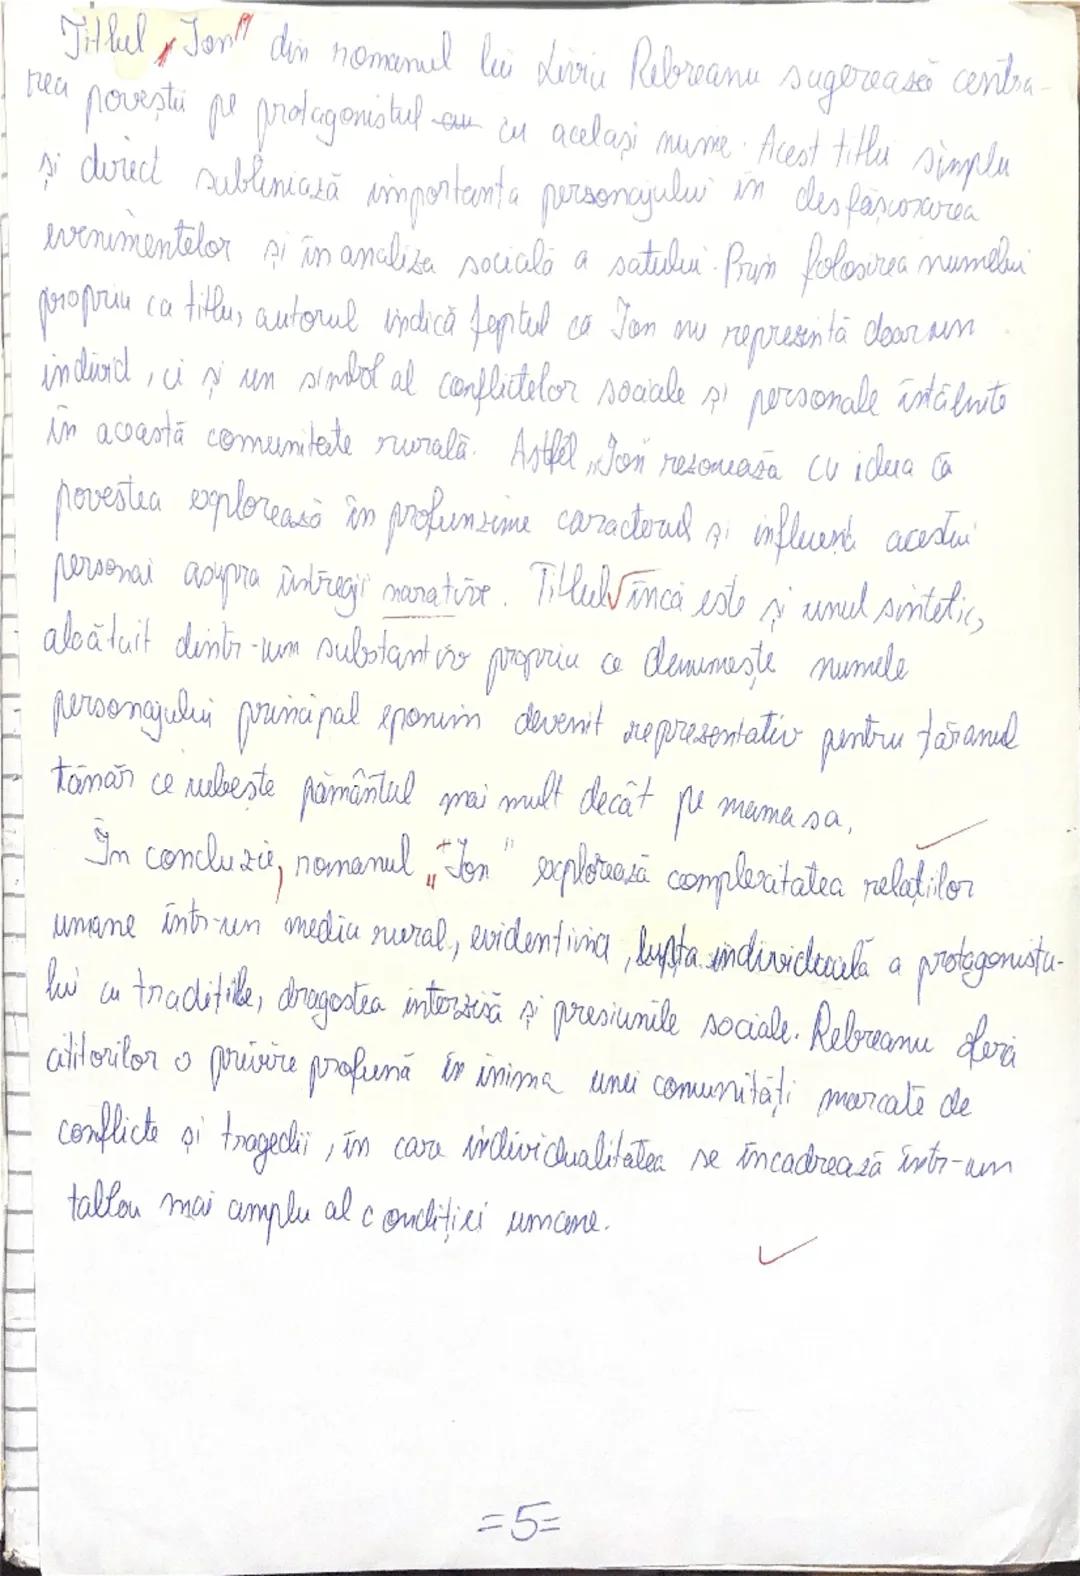 Titlul „Ion" din romanul lui Liviu Rebreanu sugerează centra-
rea poveștii pe protagonistul cu același nume. Acest titlu simplu
și direct subliniază importanța personajului în desfășurarea
evenimentelor și în analiza socială a satului. Prin folosirea numelui
propriu ca titlu, autorul indică faptul că Ion nu reprezintă doar un
individ, ci și un simbol al conflictelor sociale și personale întâlnite
în această comunitate rurală. Astfel, „Ion" rezonează cu ideea că
povestea explorează în profunzime caracterul și influența acestui
personaj asupra întregii narative. Titlul încă este și unul sintetic,
alcătuit dintr-un substantiv propriu ce denumește numele
personajului principal eponim devenit reprezentativ pentru țăranul
tânăr ce iubește pământul mai mult decât pe mama sa.
În concluzie, romanul „Ion" explorează complexitatea relațiilor
umane într-un mediu rural, evidențiind lupta individuală a protagonistu-
lui cu tradițiile, dragostea interzisă și presiunile sociale. Rebreanu oferă
cititorilor o privire profundă în inima unei comunități marcate de
conflicte și tragedii, în care individualitatea se încadrează într-un
tablou mai amplu al condiției umane.
=5=